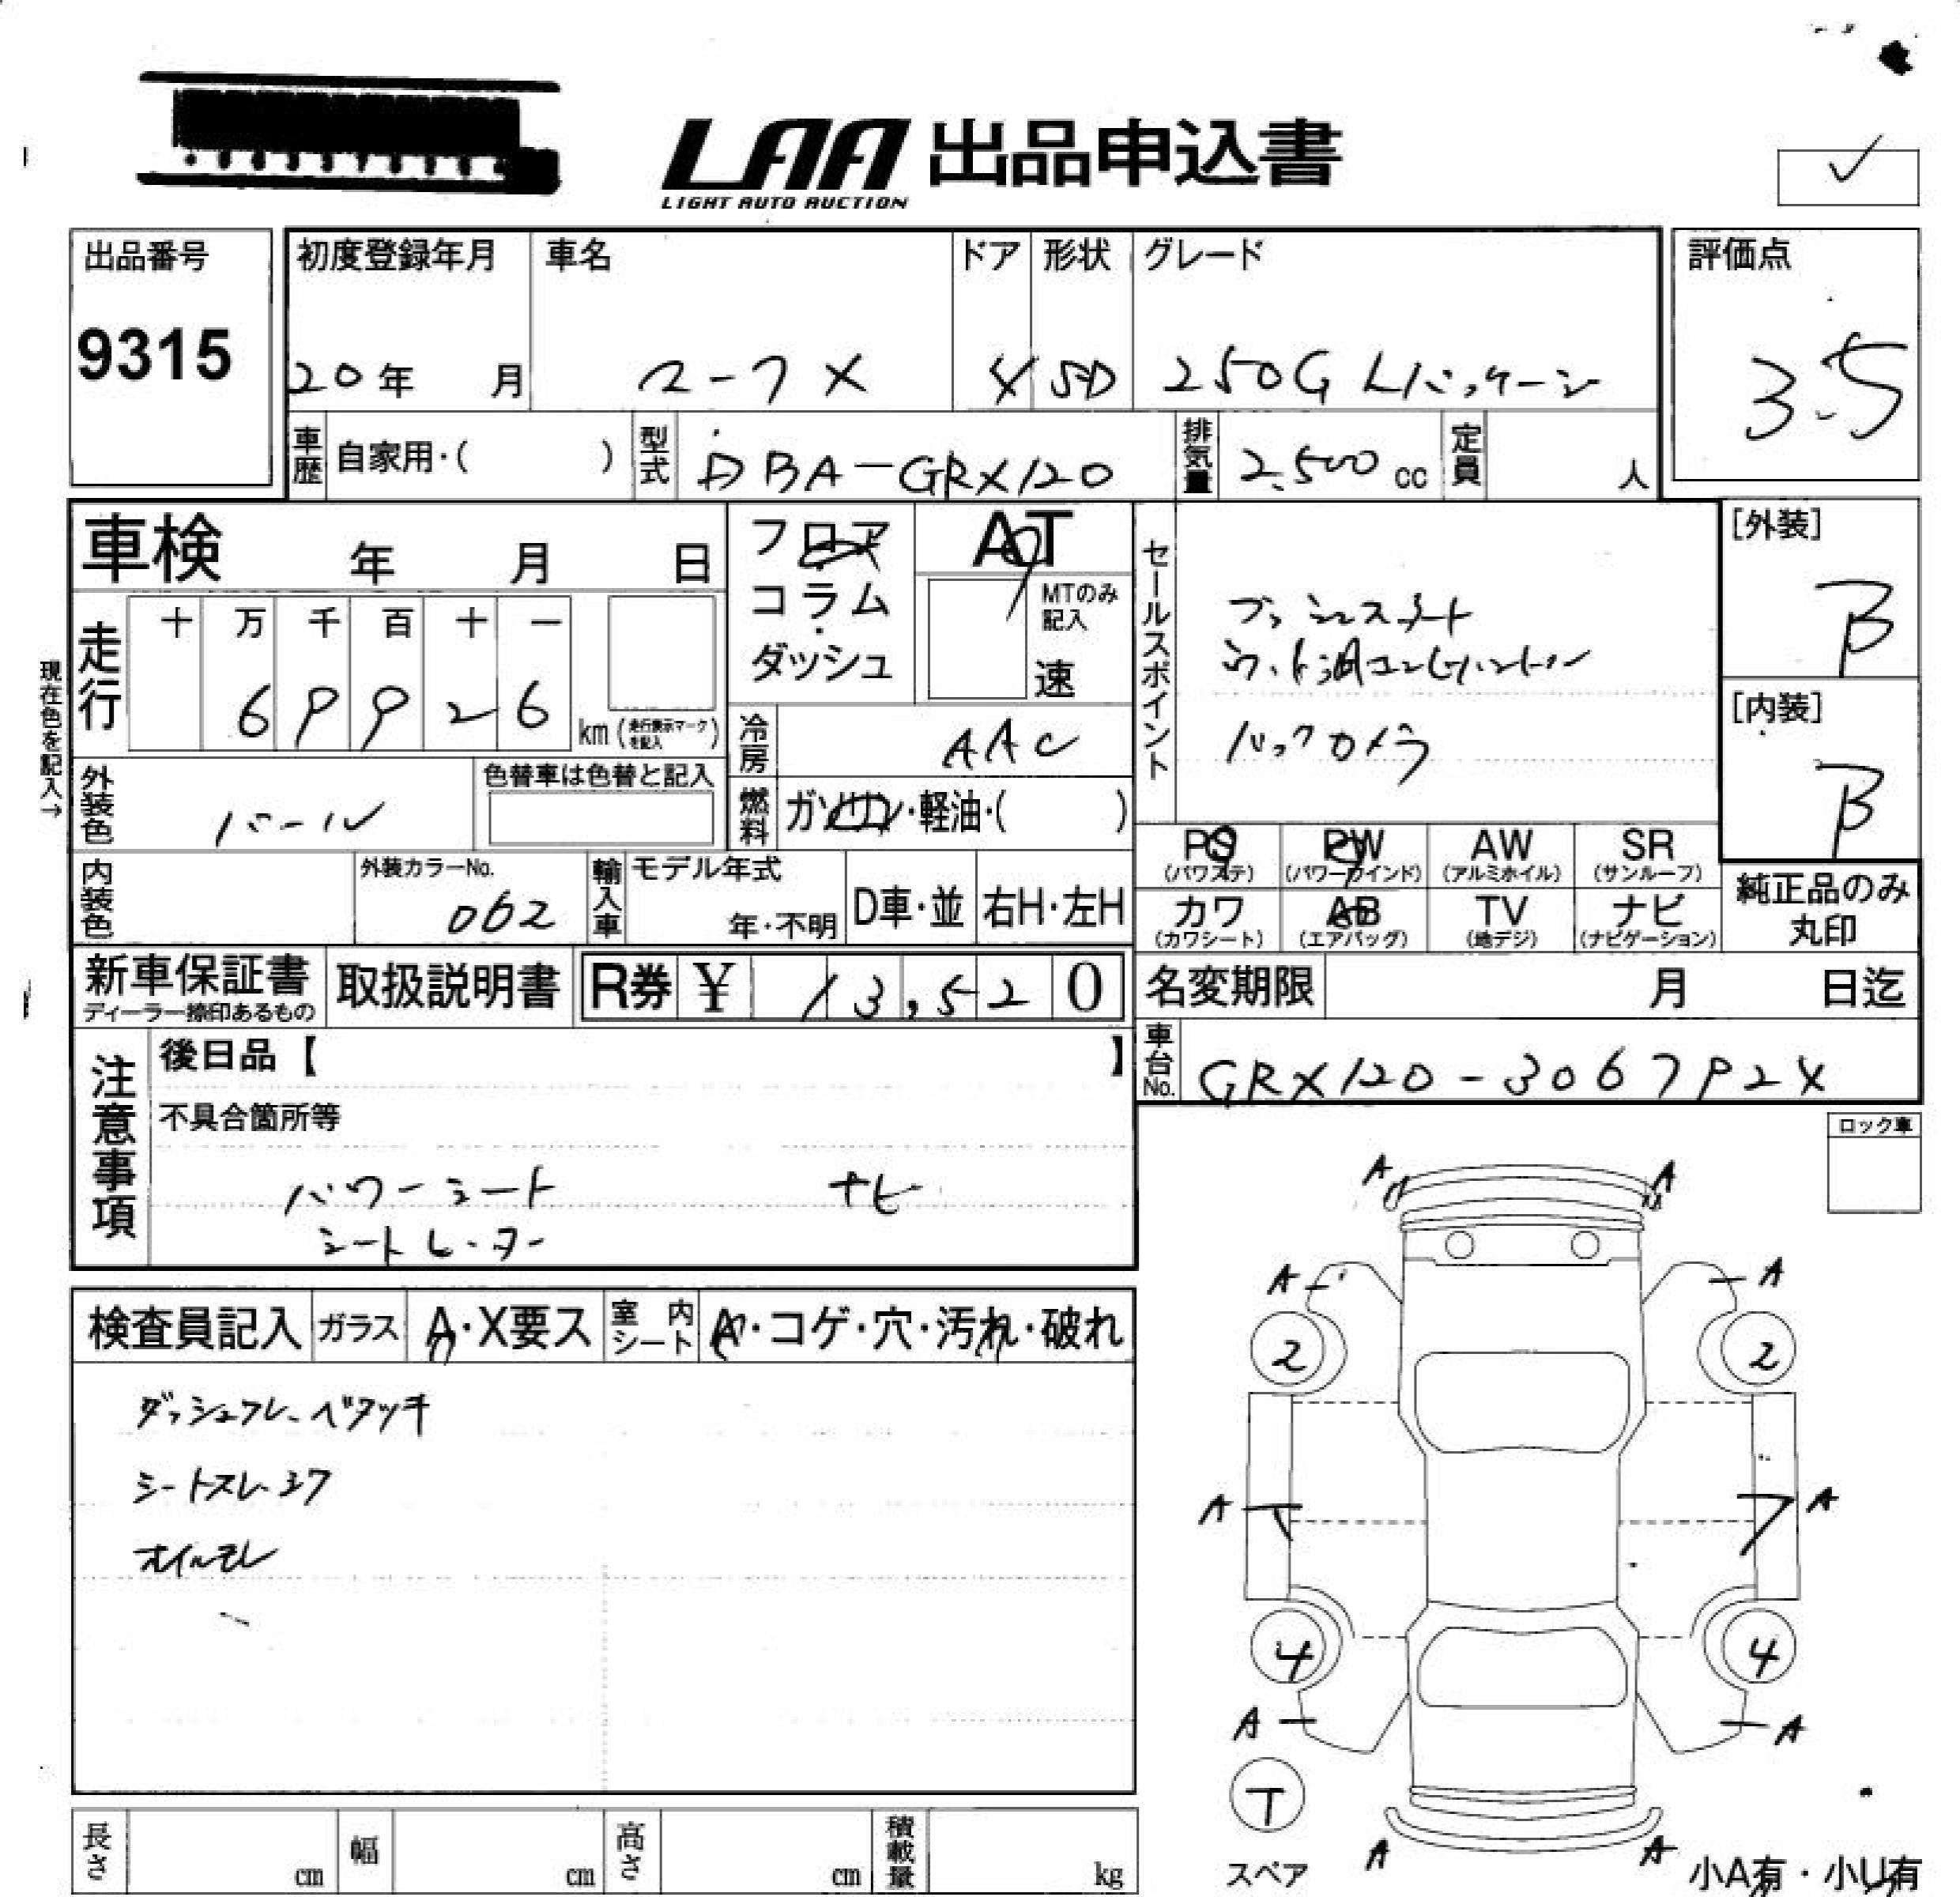 LAA 出品申込書
LIGHT AUTO AUCTION
出品番号
9315
初度登録年月
20年 月
車名
マークX
ドア
4
形状
SD
グレード
250G Lパッケージ
評価点
3.5
車歴 自家用・( )
型式 DBA-GRX120
排気量 2,500 cc
定員 人
車検 年 月 日
フロア
コラム
ダッシュ
AT
MTのみ記入
速
セールスポイント
プッシュスタート
バックカメラ
[外装]
B
[内装]
B
現在色を記入→
走行
十 万 千 百 十 一
6 9 9 2 6
km(走行表示マークを記入)
冷房 AAC
外装色 パール
色替車は色替と記入
燃料 ガソリン・軽油・( )
内装色
外装カラーNo.
062
輸入車
モデル年式
年・不明
D車・並
右H・左H
PS (パワステ)
PW (パワーウインド)
AW (アルミホイル)
SR (サンルーフ)
カワ (カワシート)
AB (エアバッグ)
TV (地デジ)
ナビ (ナビゲーション)
純正品のみ
丸印
新車保証書
ディーラー捺印あるもの
取扱説明書
R券 ¥ 13,520
名変期限 月 日迄
車台No. GRX120-306792X
注意事項
後日品【 】
不具合箇所等
パワーシート ナビ
シートヒーター
ロック車
検査員記入
ガラス A・X要ス
室内シート A・コゲ・穴・汚れ・破れ
シートスレ・シワ
オイルモレ
A A
A A
2 2
A A
4 4
A A
T
スペア
A A
小A有・小U有
長さ cm
幅 cm
高さ cm
積載量 kg